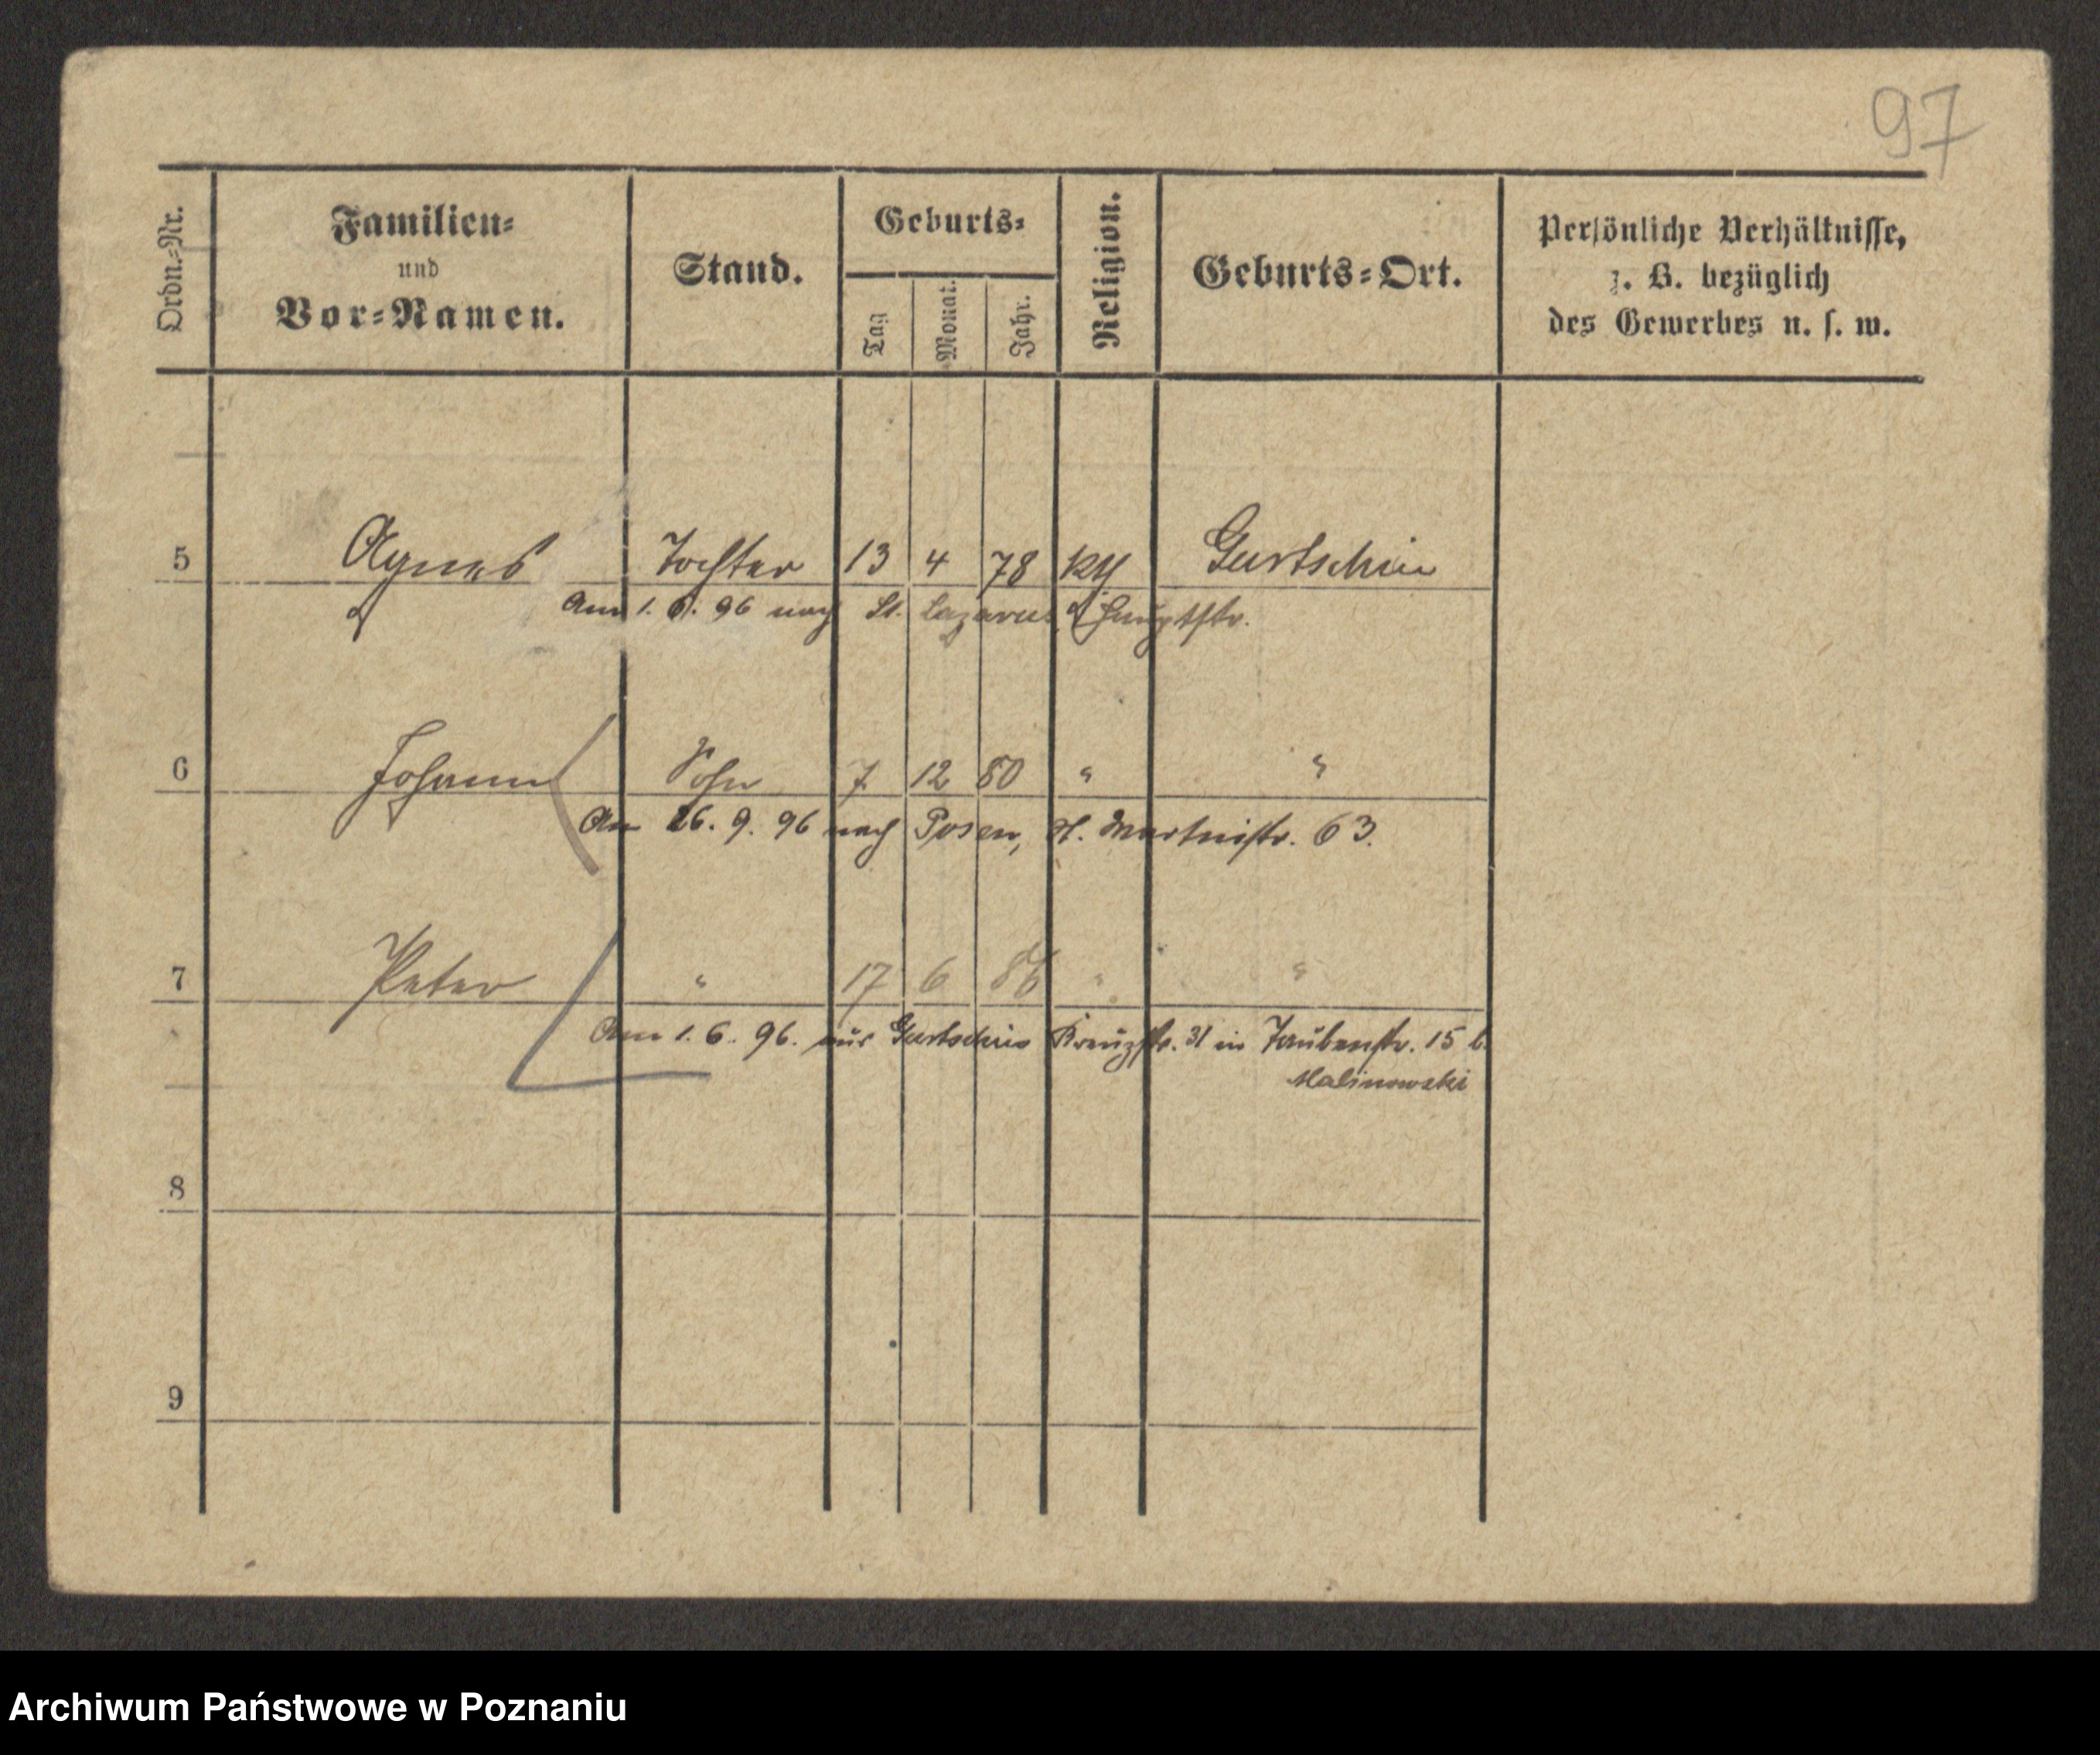 97
Ordn.-Nr.
Familien-
und
Vor-Namen.
Stand.
Geburts-
Tag
Monat.
Jahr.
Religion.
Geburts-Ort.
Persönliche Verhältnisse,
z. B. bezüglich
des Gewerbes u. s. w.
5 Agnes Tochter 13 4 78 kth Gurtschin
Am 1. 6. 96 nach St. Lazarus, Hauptstr.
6 Johann Sohn 7 12 80 " "
Am 26. 9. 96 nach Posen, St. Martinstr. 63.
7 Peter " 17 6 86 " "
Am 1. 6. 96. aus Gurtschin Kreuzstr. 31 in Taubenstr. 15 b.
Malinowski
8
9
Archiwum Państwowe w Poznaniu